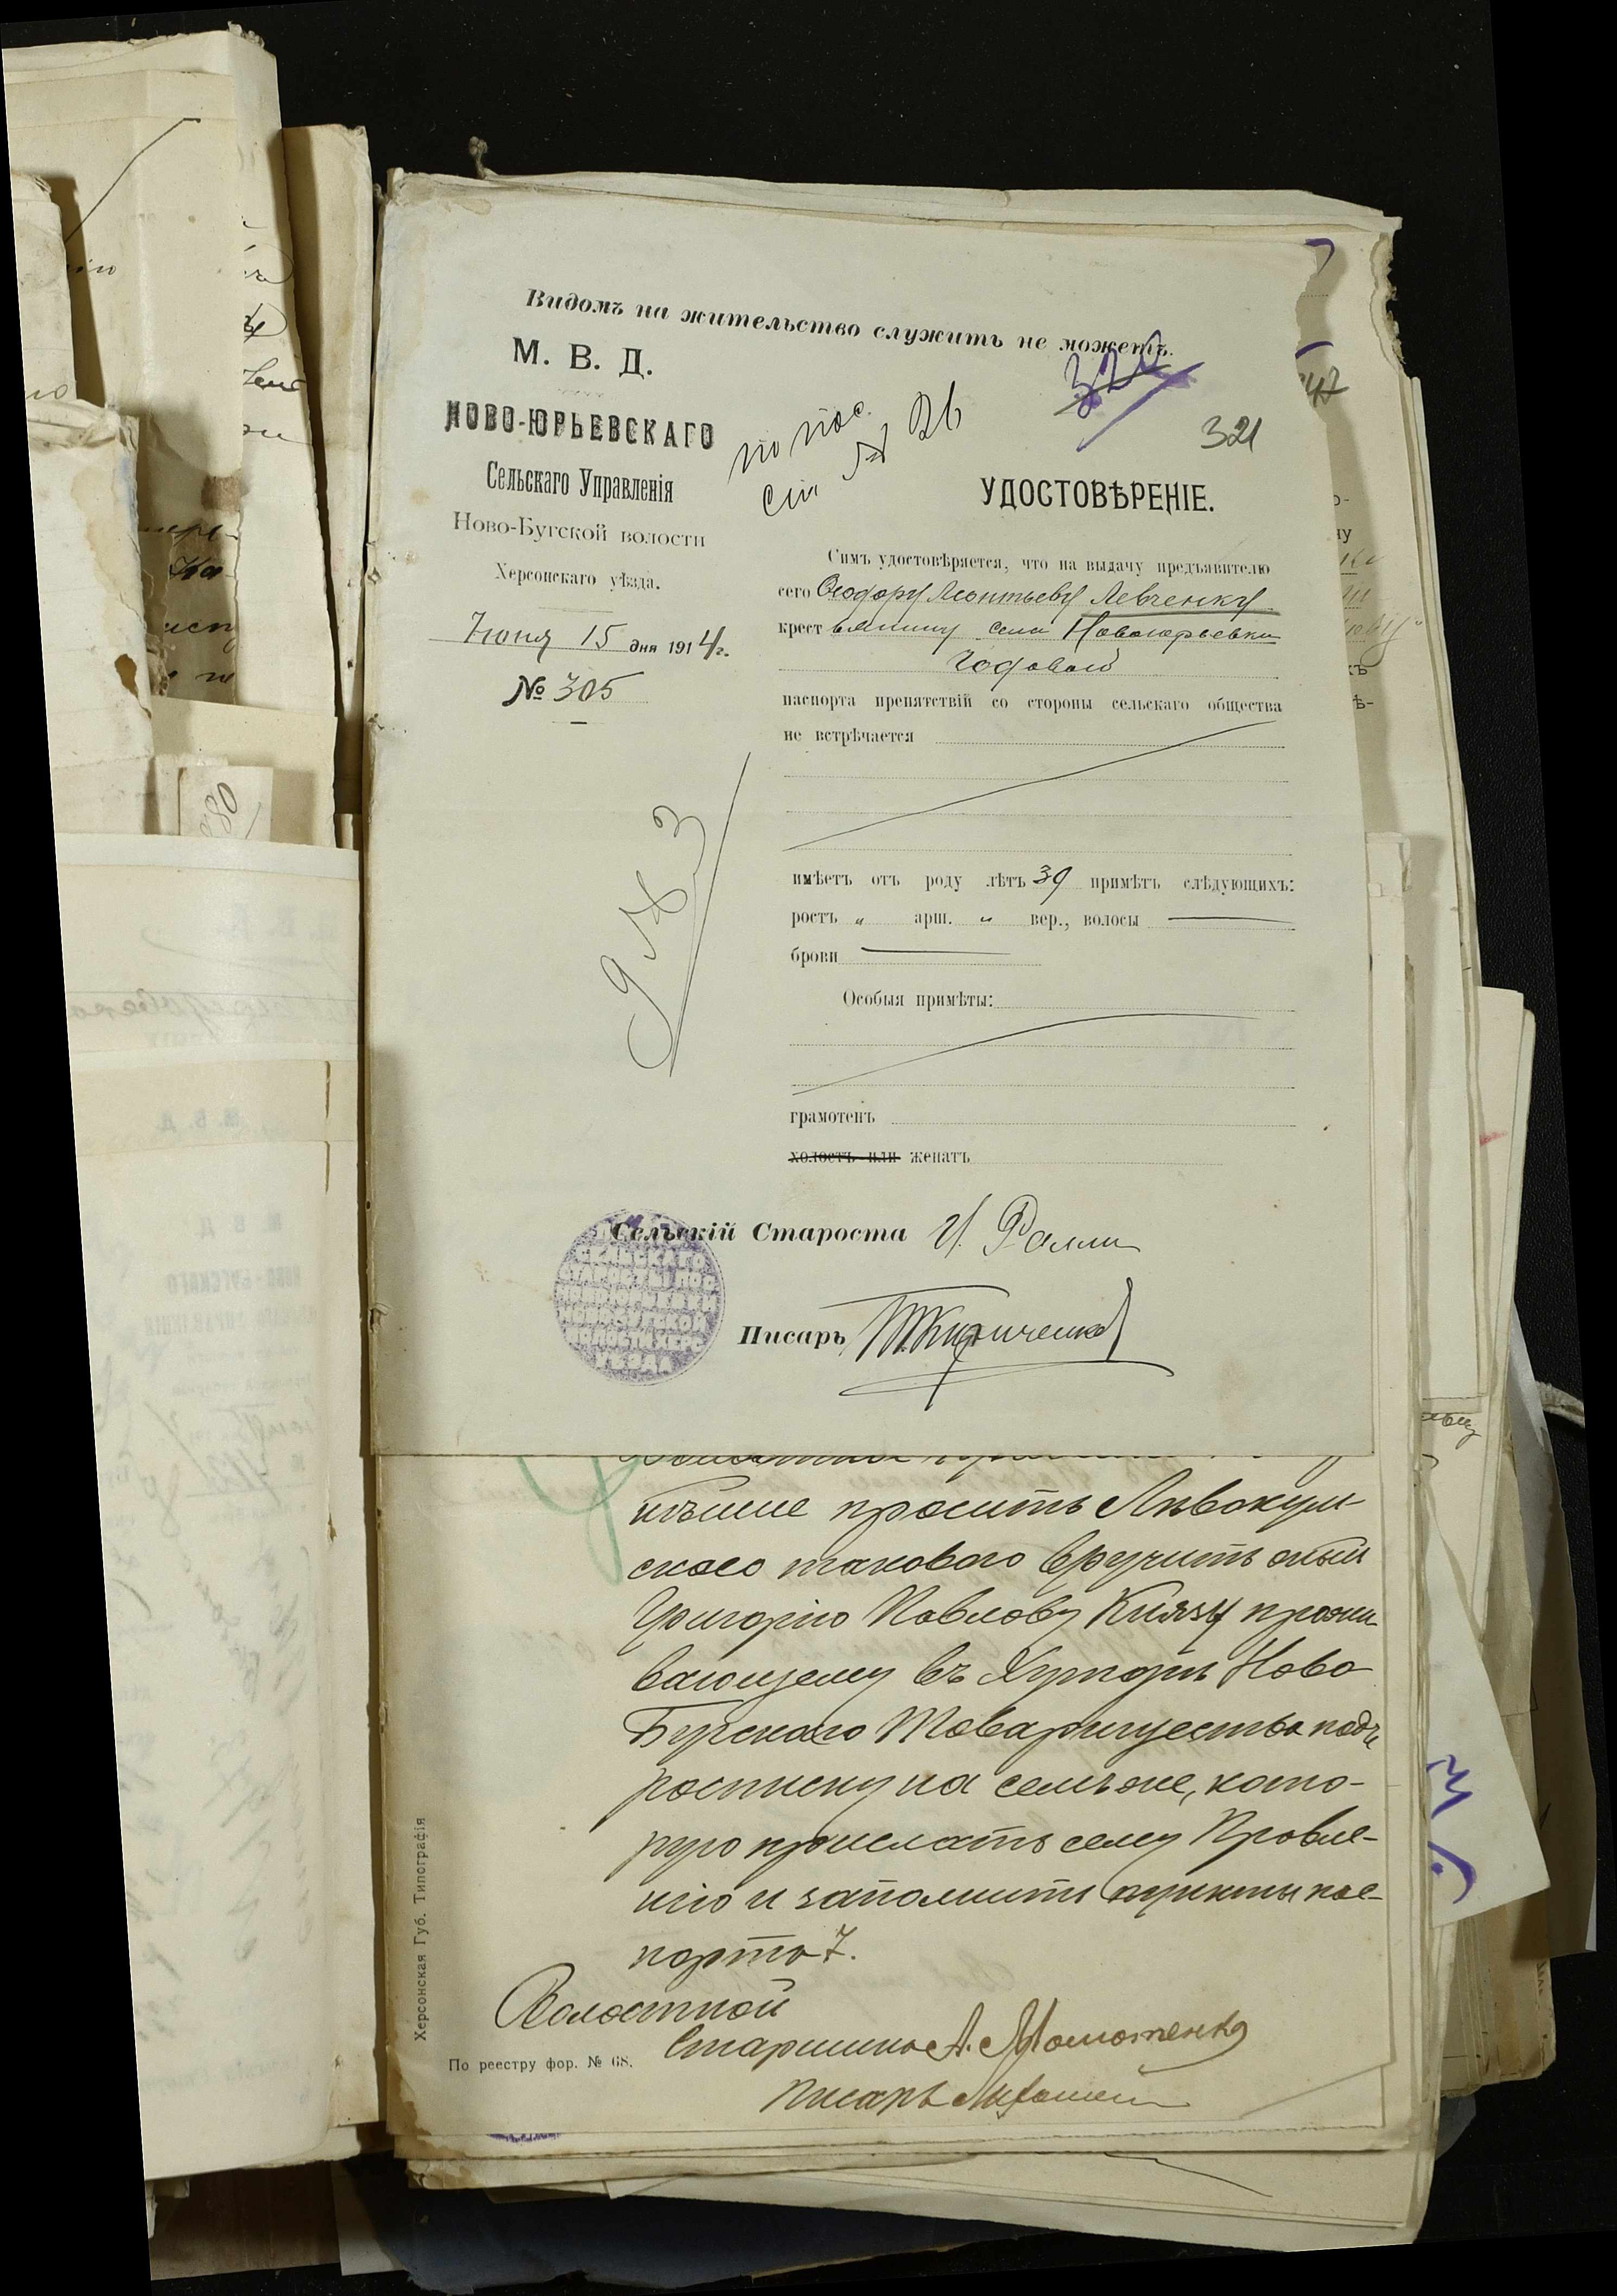 Видомъ на жительство служить не можетъ.
М. В. Д.
НОВО-ЮРЬЕВСКАГО
Сельскаго Управленія
Ново-Бугской волости
Херсонскаго уѣзда.
Іюня 15 дня 1914 г.
№ 305
321
УДОСТОВѢРЕНІЕ.
Симъ удостовѣряется, что на выдачу предъявителю
сего Ѳеодору Леонтьеву Левченку
крестьянину села Новоюрьевки
годовой
паспорта препятствій со стороны сельскаго общества
не встрѣчается
имѣетъ отъ роду лѣтъ 39 примѣтъ слѣдующихъ:
ростъ „ арш. „ вер., волосы
брови
Особыя примѣты:
грамотенъ
холостъ или женатъ
Сельскій Староста И. Ралли
Писарь
СЕЛЬСКАГО
СТАРОСТЫ ПОС.
НОВОЮРЬЕВКИ
НОВОБУГСКОЙ
ВОЛОСТИ ХЕРС.
УѢЗДА
просить
скаго таковаго вручить
Григорію Павлову Князу прожи-
вающему въ Хуторѣ Ново
Бугскаго Товарищества подъ
росписку на семъ же, кото-
рую прислать сему Правле-
нію и заполнить пункты пас-
порта 7.
Волостной
Старшина А.
Писарь
Херсонская Губ. Типографія
По реестру фор. № 68.